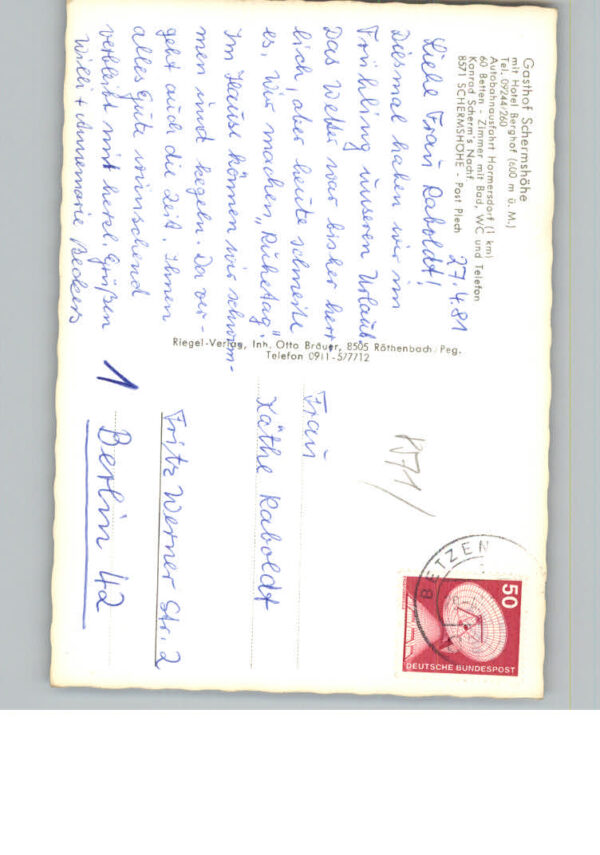 Gasthof Schermshöhe
mit Hotel Berghof (600 m ü. M.)
Tel. 09244/260
Autobahnausfahrt Hormersdorf (1 km)
60 Betten - Zimmer mit Bad, WC und Telefon
Konrad Scherm's Nachf.
8571 SCHERMSHÖHE - Post Plech
27.4.81
Liebe Frau Raboldt!
Diesmal haben wir im
Frühling unseren Urlaub.
Das Wetter war bisher herr-
lich, aber heute schneite
es. Wir machen „Ruhetag".
Im Hause können wir schwim-
men und kegeln. Da ver-
geht auch die Zeit. Ihnen
alles Gute wünschend
verbleibt mit herzl. Grüßen
Willi + Annemarie Beckers
Riegel-Verlag, Inh. Otto Bräuer, 8505 Röthenbach/Peg.
Telefon 0911-577712
Frau
Käthe Raboldt
Fritz Werner Str. 2
1 Berlin 42
BETZEN
50
DEUTSCHE BUNDESPOST